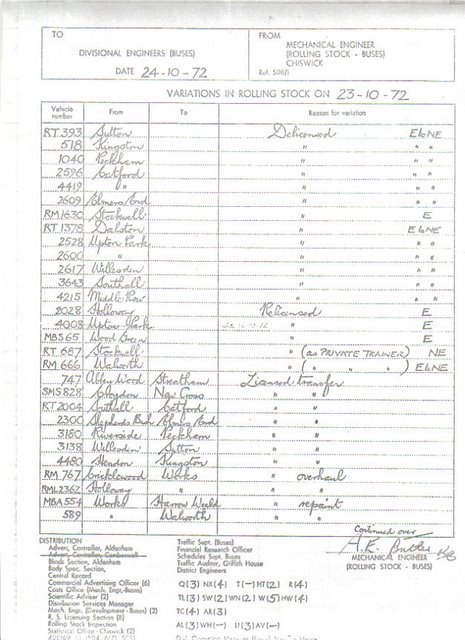 TO
DIVISIONAL ENGINEERS (BUSES)
DATE 24-10-72
FROM
MECHANICAL ENGINEER
(ROLLING STOCK - BUSES)
CHISWICK
Ref.
VARIATIONS IN ROLLING STOCK ON 23-10-72
Vehicle number From To Reason for variation
RT 393 Sutton Delicensed E & NE
518 Kingston " " "
1040 Peckham " " "
2596 Catford " " "
4419 " " " "
2609 Elmers End " " "
RM 1630 Stockwell " E
RT 1378 Dalston " E & NE
2528 Upton Park " " "
2600 " " " "
2617 Willesden " " "
3643 Southall " " "
4215 Middle Row " " "
2028 Holloway Relicensed E
4008 Upton Park " E
MBS 65 Wood Green " E
RT 687 Stockwell " (as PRIVATE TRAINER) NE
RM 666 Walworth " ( " " " ) E & NE
747 Abbey Wood Streatham Licensed transfer
SMS 828 Croydon New Cross " "
RT 2004 Southall Catford " "
2300 Shepherds Bush Elmers End " "
3180 Riverside Peckham " "
3138 Willesden Sutton " "
4480 Hendon Kingston " "
RM 767 Cricklewood Works " overhaul
RML 2362 Holloway " " "
MBA 554 Works Harrow Weald " repaint
589 " Walworth " "
Continued over
A. E. Butler
MECHANICAL ENGINEER
(ROLLING STOCK - BUSES)
DISTRIBUTION
Advert. Controller, Aldenham
Advert. Controller, Camberwell
Blinds Section, Aldenham
Body Spec. Section,
Central Record
Commercial Advertising Officer (6)
Costs Office (Mech. Engr.-Buses)
Scientific Adviser (2)
Distribution Services Manager
Mech. Engr. (Development - Buses) (2)
R. S. Licensing Section (8)
Rolling Stock Inspection
Statistical Office - Chiswick (2)
Traffic Supt. (Buses)
Financial Research Officer
Schedules Supt. Buses
Traffic Auditor, Griffith House
District Engineers
Q(3) NX(4) T(-) HT(2) R(4)
TL(3) SW(2) WN(2) W(5) HW(4)
TC(4) AR(3)
AL(3) WH(-) U(3) AV(-)